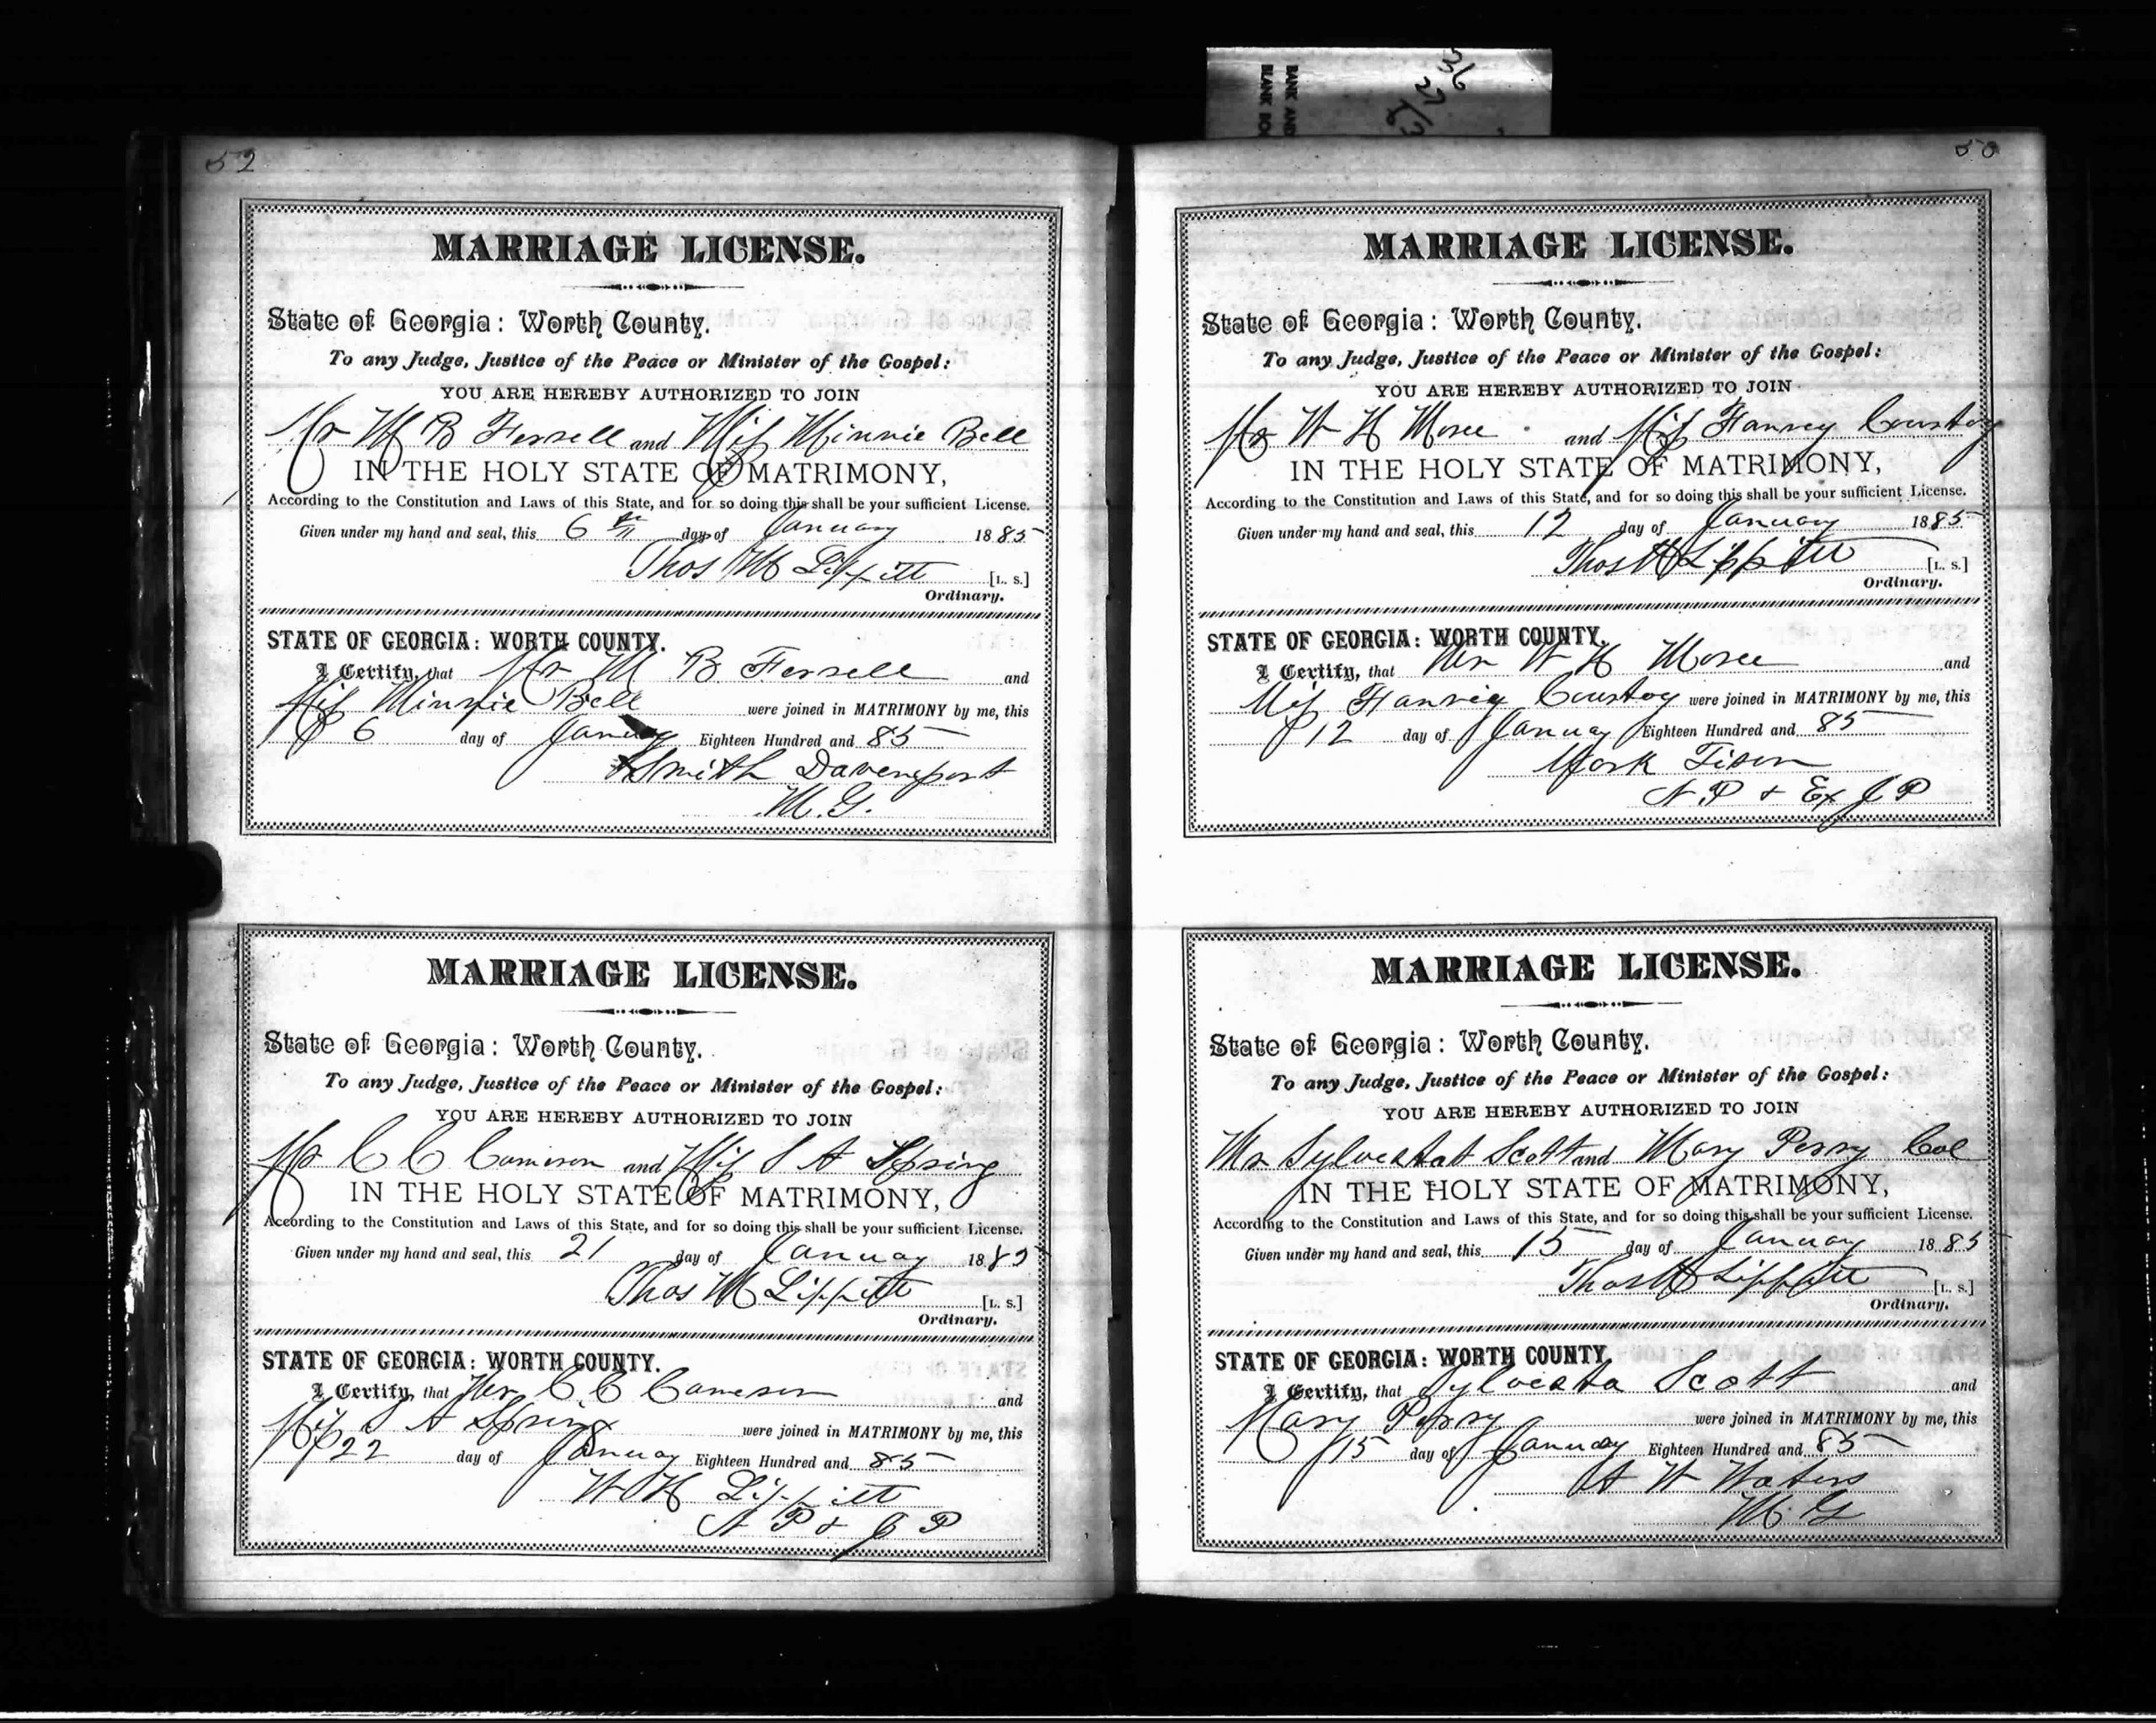 52
MARRIAGE LICENSE.
State of Georgia: Worth County.
To any Judge, Justice of the Peace or Minister of the Gospel:
YOU ARE HEREBY AUTHORIZED TO JOIN
Mr M B Ferrell and Miss Minnie Bell
IN THE HOLY STATE OF MATRIMONY,
According to the Constitution and Laws of this State, and for so doing this shall be your sufficient License.
Given under my hand and seal, this 6 th day of January 1885
Thos M Lippitt [L. S.]
Ordinary.
STATE OF GEORGIA: WORTH COUNTY.
I Certify, that Mr M B Ferrell and
Miss Minnie Bell were joined in MATRIMONY by me, this
6 day of January Eighteen Hundred and 85
Smith Davenport
M. G.
MARRIAGE LICENSE.
State of Georgia: Worth County.
To any Judge, Justice of the Peace or Minister of the Gospel:
YOU ARE HEREBY AUTHORIZED TO JOIN
Mr C C Cameron and Miss S A Spring
IN THE HOLY STATE OF MATRIMONY,
According to the Constitution and Laws of this State, and for so doing this shall be your sufficient License.
Given under my hand and seal, this 21 day of January 1885
Thos M Lippitt [L. S.]
Ordinary.
STATE OF GEORGIA: WORTH COUNTY.
I Certify, that Mr C C Cameron and
Miss S A Spring were joined in MATRIMONY by me, this
22 day of January Eighteen Hundred and 85
W H Lippitt
N P & J P
BANK AND
BLANK BO
50
MARRIAGE LICENSE.
State of Georgia: Worth County.
To any Judge, Justice of the Peace or Minister of the Gospel:
YOU ARE HEREBY AUTHORIZED TO JOIN
Mr W H and Miss
IN THE HOLY STATE OF MATRIMONY,
According to the Constitution and Laws of this State, and for so doing this shall be your sufficient License.
Given under my hand and seal, this 12 day of January 1885
Thos M Lippitt [L. S.]
Ordinary.
STATE OF GEORGIA: WORTH COUNTY.
I Certify, that Mr W H and
Miss were joined in MATRIMONY by me, this
12 day of January Eighteen Hundred and 85
Mark Tison
N. P & Ex J P
MARRIAGE LICENSE.
State of Georgia: Worth County.
To any Judge, Justice of the Peace or Minister of the Gospel:
YOU ARE HEREBY AUTHORIZED TO JOIN
Mr Scott and Mary Perry Col
IN THE HOLY STATE OF MATRIMONY,
According to the Constitution and Laws of this State, and for so doing this shall be your sufficient License.
Given under my hand and seal, this 15 day of January 1885
Thos M Lippitt [L. S.]
Ordinary.
STATE OF GEORGIA: WORTH COUNTY.
I Certify, that Sylvesta Scott and
Mary Perry were joined in MATRIMONY by me, this
15 day of January Eighteen Hundred and 85
A W Waters
M G